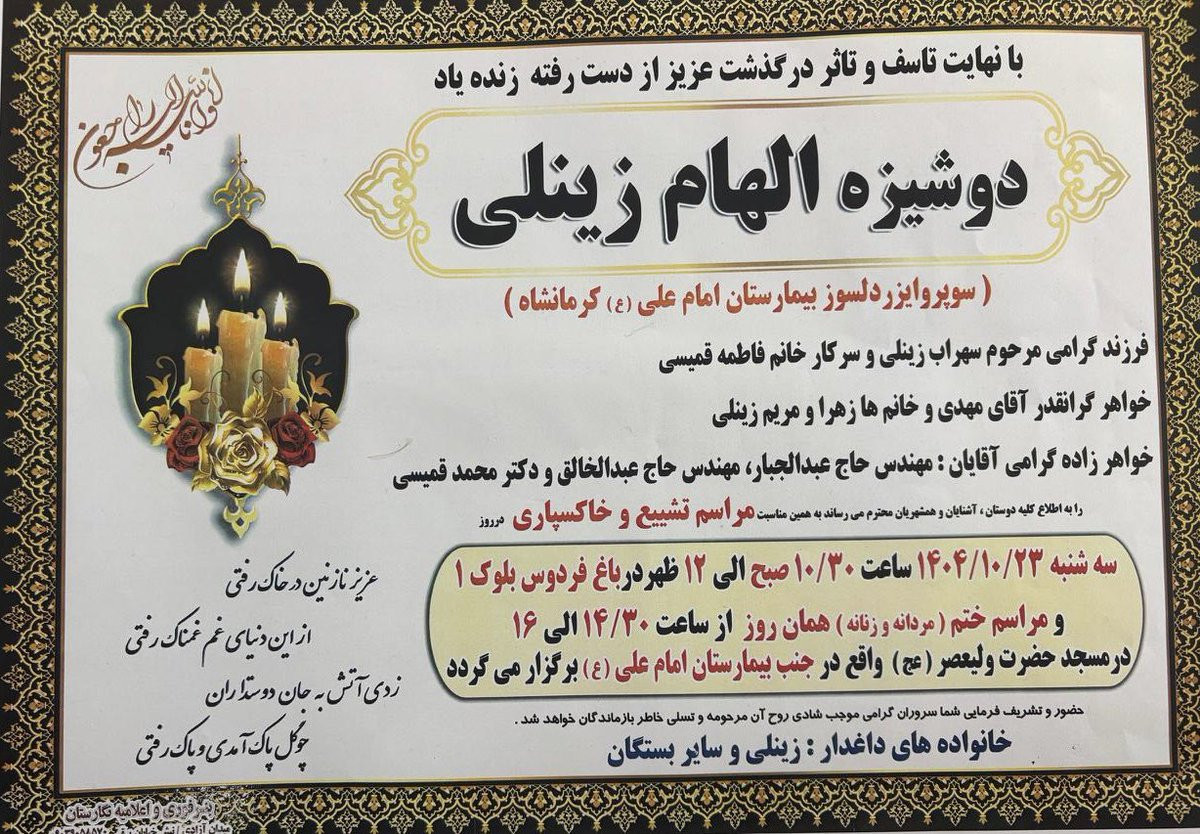 انا لله و انا الیه راجعون
با نهایت تاسف و تاثر درگذشت عزیز از دست رفته زنده یاد
دوشیزه الهام زینلی
( سوپروایزر دلسوز بیمارستان امام علی (ع) کرمانشاه )
فرزند گرامی مرحوم سهراب زینلی و سرکار خانم فاطمه قمیسی
خواهر گرانقدر آقای مهدی و خانم ها زهرا و مریم زینلی
خواهر زاده گرامی آقایان : مهندس حاج عبدالجبار، مهندس حاج عبدالخالق و دکتر محمد قمیسی
را به اطلاع کلیه دوستان ، آشنایان و همشهریان محترم می رساند به همین مناسبت مراسم تشییع و خاکسپاری در روز
سه شنبه ۱۴۰۴/۱۰/۲۳ ساعت ۱۰/۳۰ صبح الی ۱۲ ظهر در باغ فردوس بلوک ۱
و مراسم ختم ( مردانه و زنانه ) همان روز از ساعت ۱۴/۳۰ الی ۱۶
در مسجد حضرت ولیعصر (عج) واقع در جنب بیمارستان امام علی (ع) برگزار می گردد
حضور و تشریف فرمایی شما سروران گرامی موجب شادی روح آن مرحومه و تسلی خاطر بازماندگان خواهد شد .
خانواده های داغدار : زینلی و سایر بستگان
عزیز نازنین در خاک رفتی
از این دنیای غم غمناک رفتی
زدی آتش به جان دوستداران
چو گل پاک آمدی و پاک رفتی
و اعلامیه نگارستان